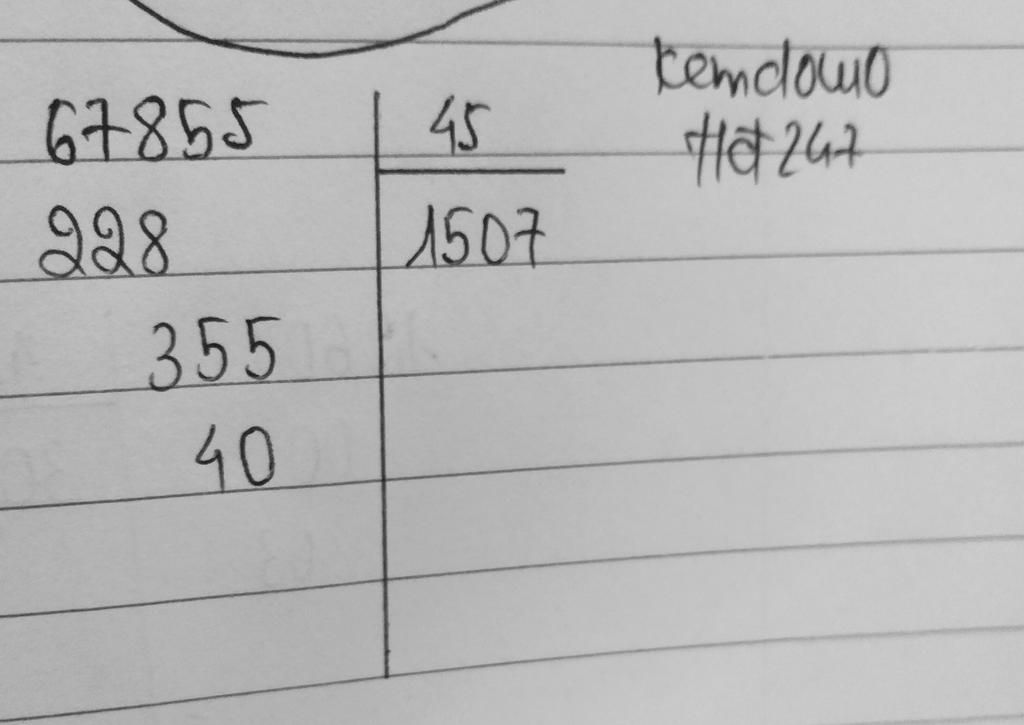 67855 45
228 1507
355
40
kemdowo
Hđt247